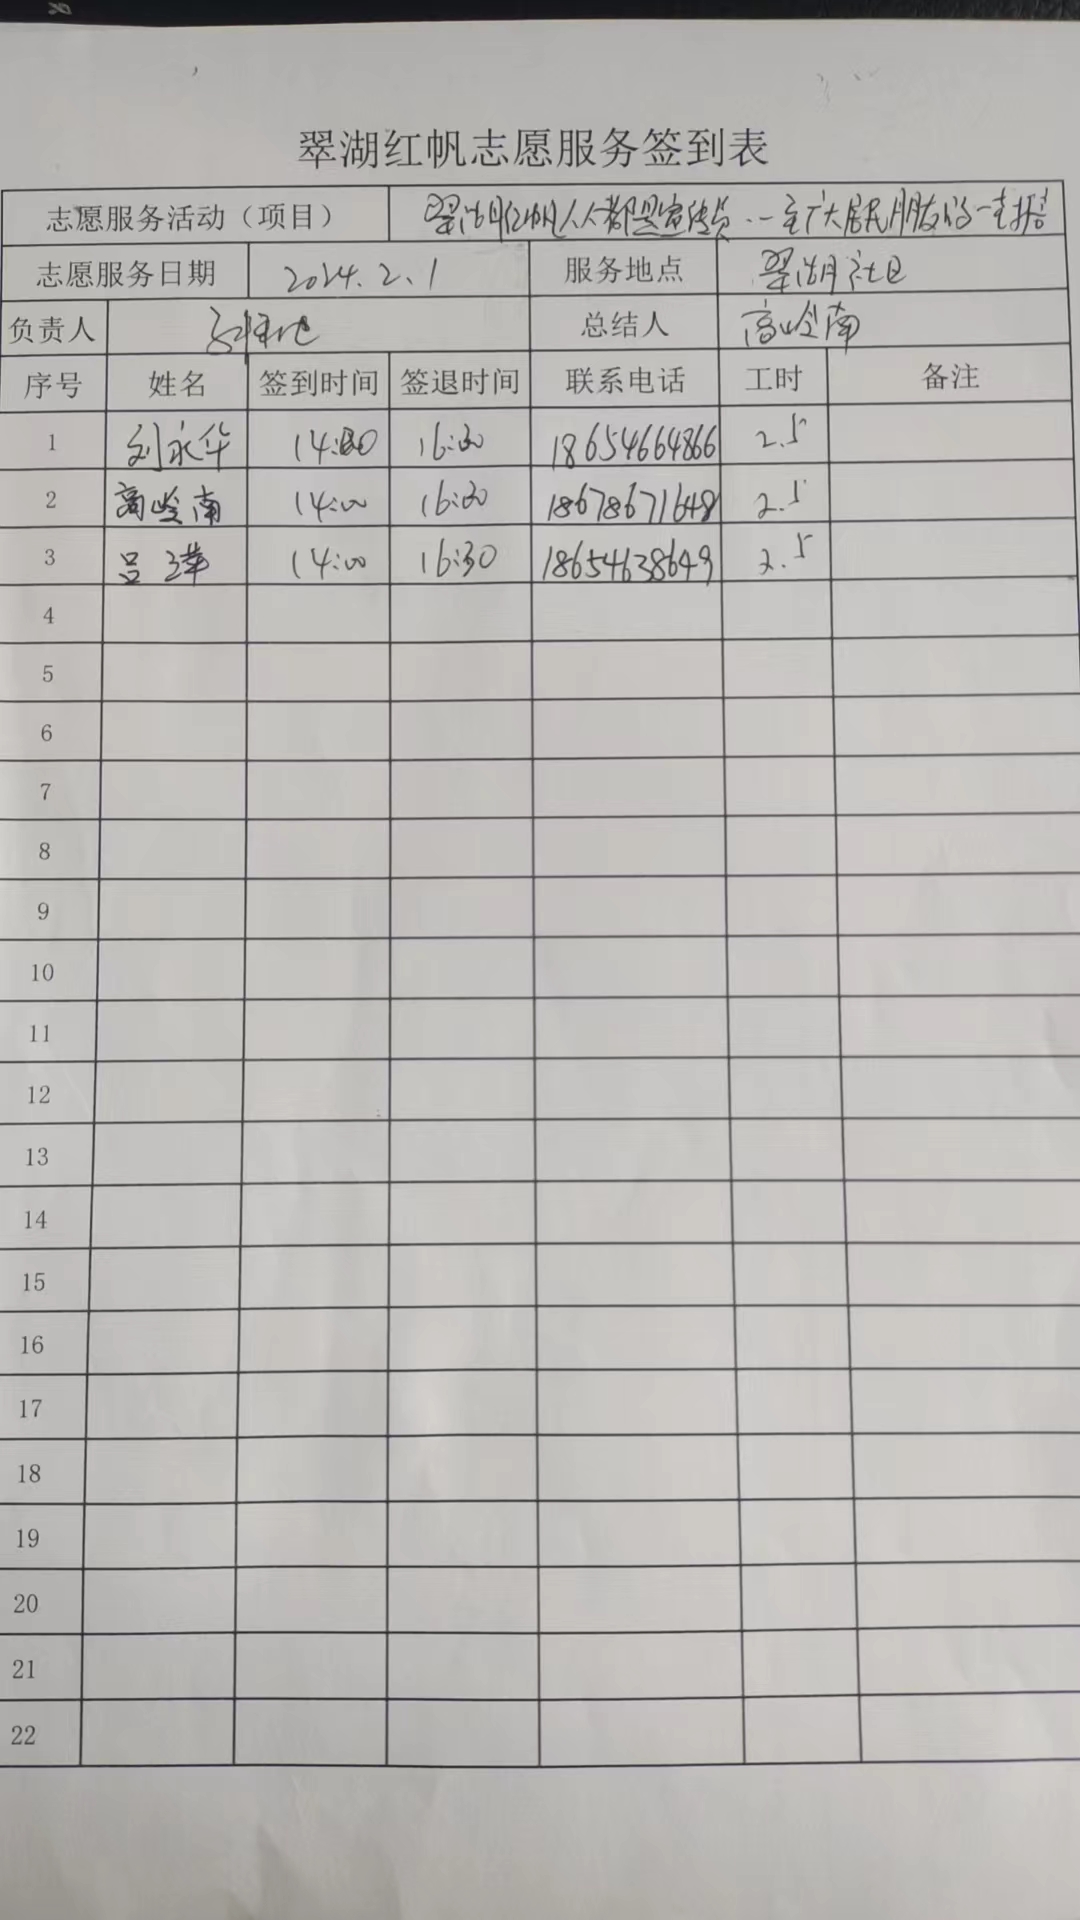 翠湖红帆志愿服务签到表
志愿服务活动（项目） 翠湖红帆人人都是宣传员 ·· 至广大居民朋友的一封信
志愿服务日期 2024.2.1 服务地点 翠湖社区
负责人 总结人 高岭南
序号 姓名 签到时间 签退时间 联系电话 工时 备注
1 刘永华 14:00 16:30 18654664866 2.5
2 高岭南 14:00 16:30 18678671648 2.5
3 吕 14:00 16:30 18654638649 2.5
4
5
6
7
8
9
10
11
12
13
14
15
16
17
18
19
20
21
22